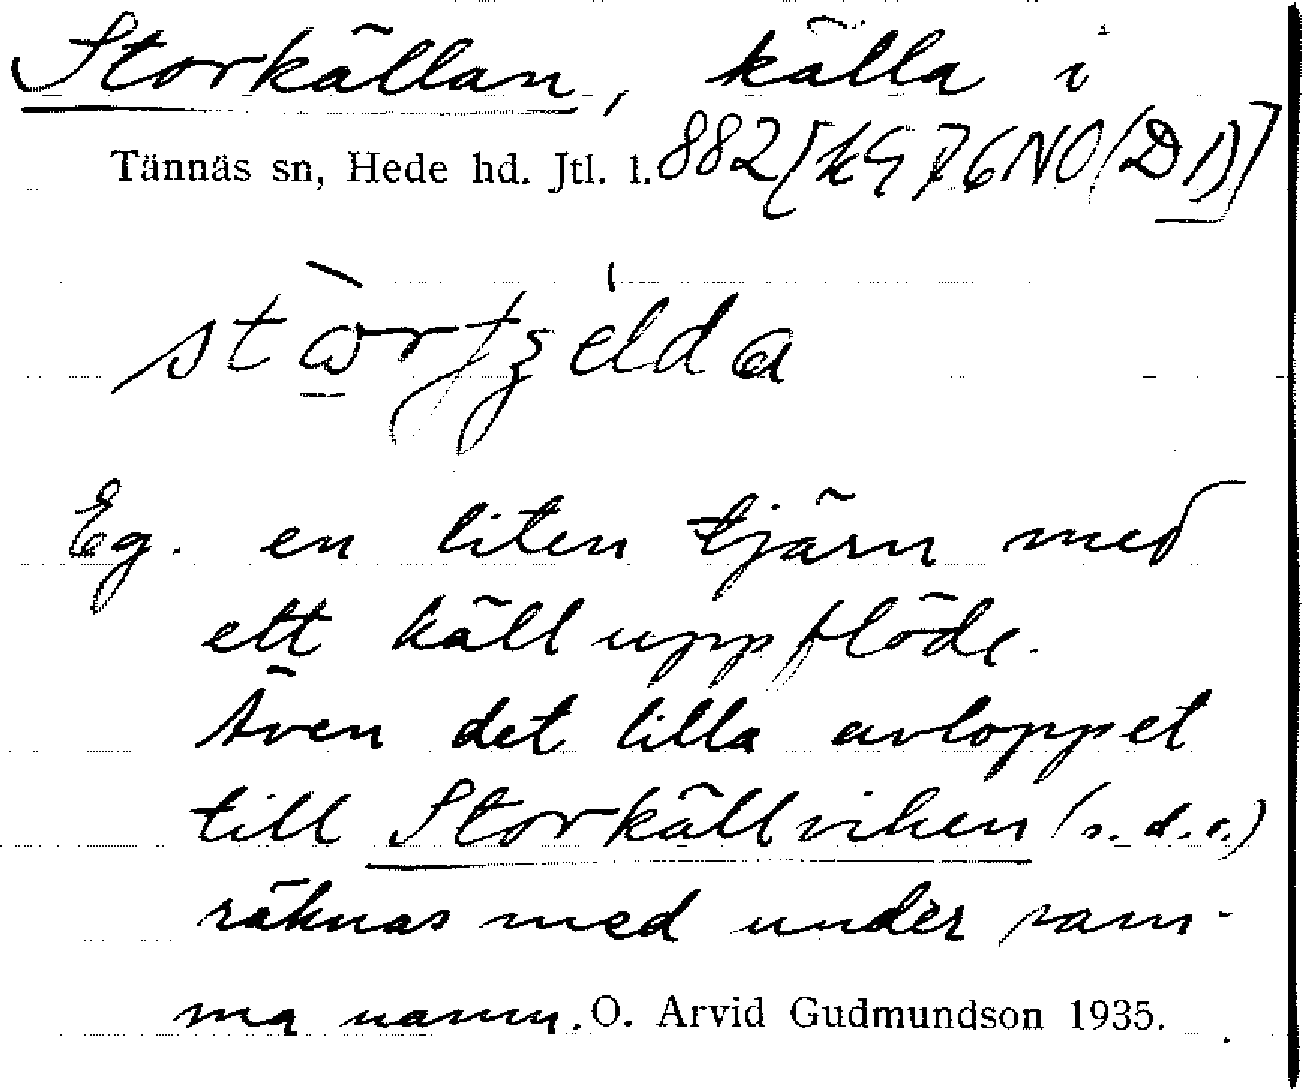 Storkällan, källa i
Tännäs sn, Hede hd. Jtl. l. 882 [kG 76 NO (D 1)]
Eg. en liten tjärn med
ett källuppflöde.
Även det lilla avloppet
till Storkällviken (s.d.o.)
räknas med under sam-
ma namn. O. Arvid Gudmundson 1935.